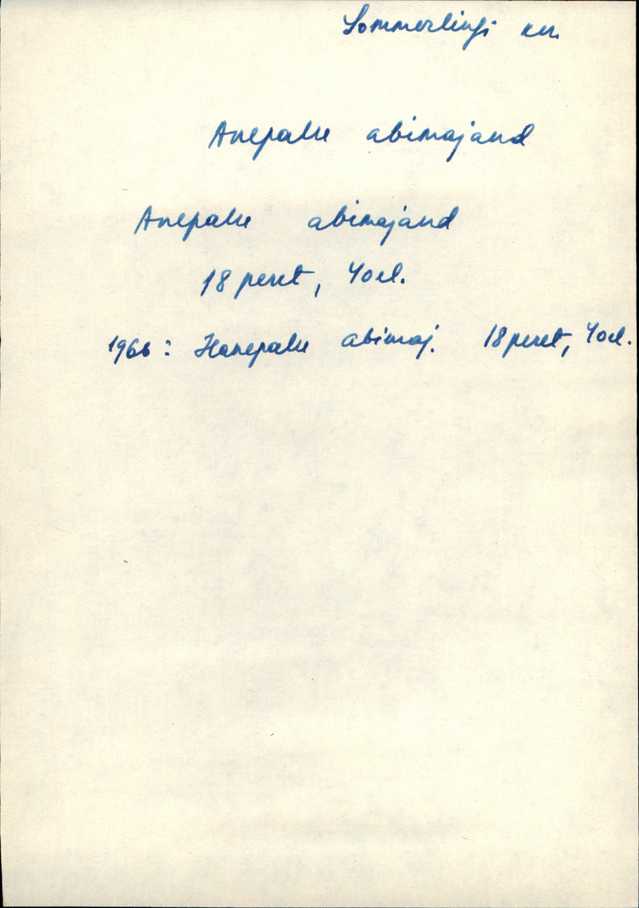 Sommerlingi kn.
Anepalu abimajand
Anepalu abimajand
18 peret, 40 el.
1966: Hanepalu abimaj. 18 peret, 40 el.